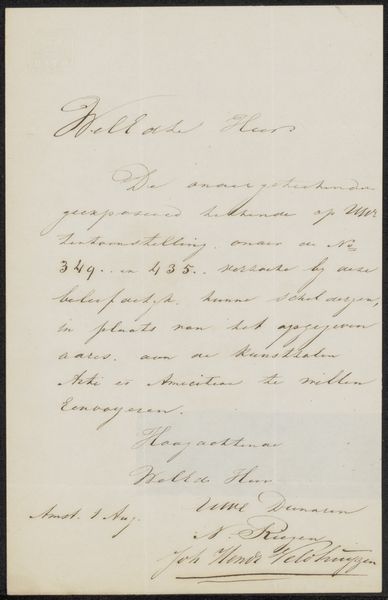 WelEdle Heer
De ondergeteekenden
geexposeerd hebbende op Uwe
tentoonstelling onder de No
349.. en 435.. verzoeke bij deze
beleefdelijk hunne schilderijen,
in plaats van het opgegeven
adres. aan de kunstzalen
Arti et Amicitiae te willen
Envoyeren.
Hoogachtend
WelEd Heer
UWE Dienaren
N. Riegen
Amst. 1 Aug.
Joh Hendk Veldhuijzen